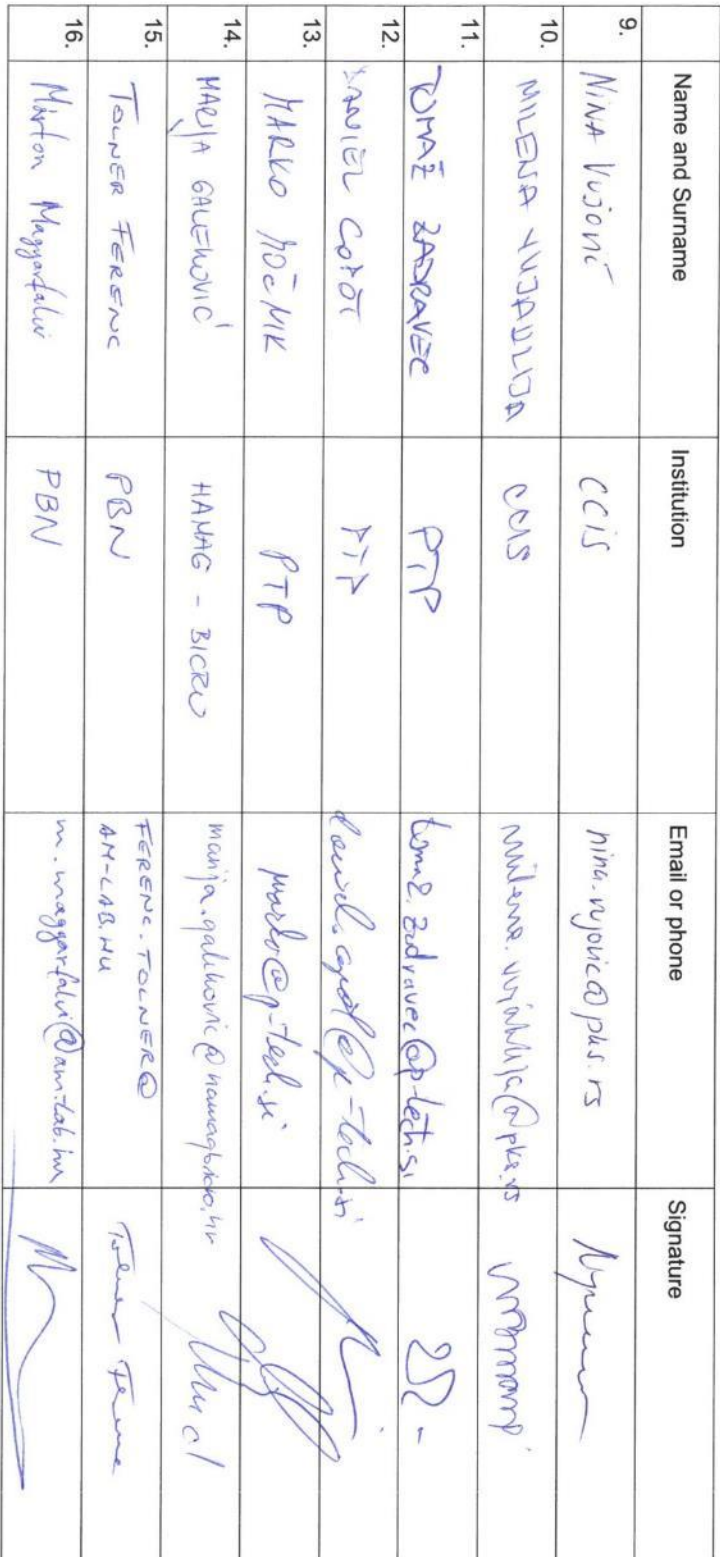 Name and Surname Institution Email or phone Signature
9. NINA VUJOVIĆ CCIS nina.vujovic@pks.rs
10. MILENA VUJAKLIJA CCIS milena.vujaklija@pks.rs
11. TOMAŽ ZADRAVEC PTP tomaz.zadravec@p-tech.si
12. DANIEL COPOT PTP daniel.copot@p-tech.si
13. MARKO MOČNIK PTP marko@p-tech.si
14. MARIJA GALEKOVIĆ HAMAG - BICRO marija.galekovic@hamagbicro.hr
15. TOLNER FERENC PBN FERENC.TOLNER@ Tolner Ferenc
AM-LAB.HU
16. Márton Magyarfalvi PBN m.magyarfalvi@am-lab.hu